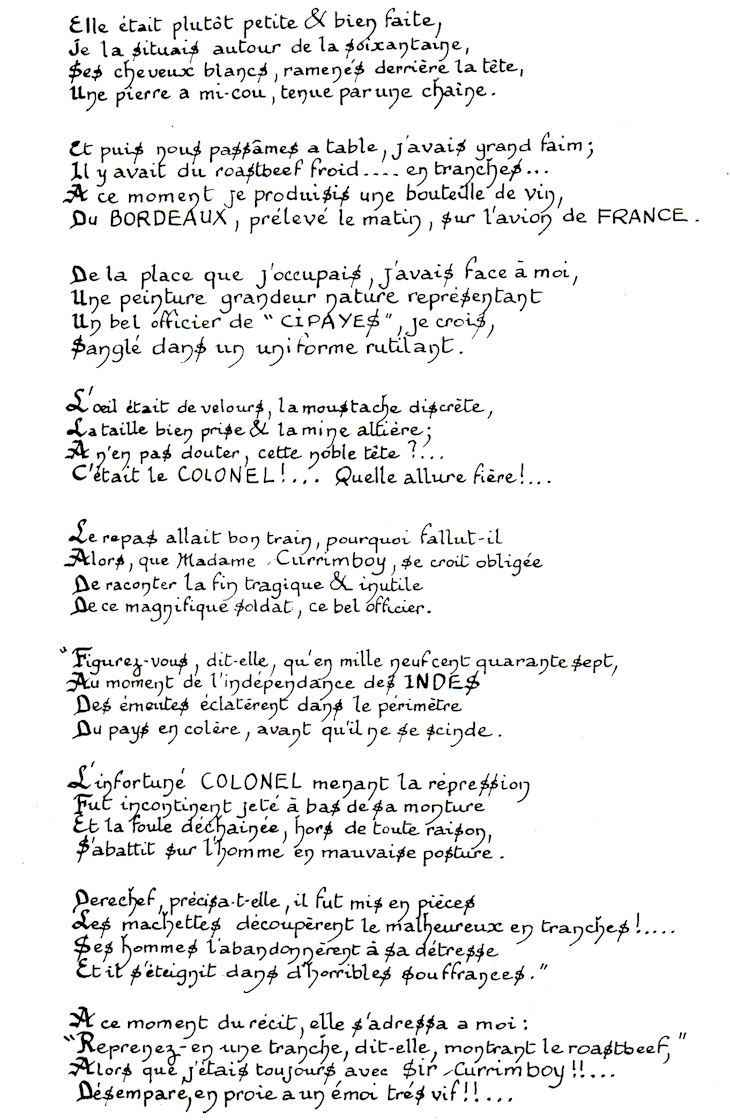 Elle était plutôt petite & bien faite,
Je la situais autour de la soixantaine,
Ses cheveux blancs, ramenés derrière la tête,
Une pierre a mi-cou, tenue par une chaîne.
Et puis nous passâmes a table, j'avais grand faim;
Il y avait du roastbeef froid.... en tranches...
A ce moment je produisis une bouteille de vin,
Du BORDEAUX, prélevé le matin, sur l'avion de FRANCE.
De la place que j'occupais, j'avais face à moi,
Une peinture grandeur nature représentant
Un bel officier de "CIPAYES", je crois,
Sanglé dans un uniforme rutilant.
L'œil était de velours, la moustache discrète,
La taille bien prise & la mine altière;
A n'en pas douter, cette noble tête ?...
C'était le COLONEL!... Quelle allure fière!...
Le repas allait bon train, pourquoi fallut-il
Alors, que Madame Currimboy, se croit obligée
De raconter la fin tragique & inutile
De ce magnifique soldat, ce bel officier.
"Figurez-vous, dit-elle, qu'en mille neuf cent quarante sept,
Au moment de l'indépendance des INDES
Des émeutes éclatèrent dans le périmètre
Du pays en colère, avant qu'il ne se scinde.
L'infortuné COLONEL menant la répression
Fut incontinent jeté à bas de sa monture
Et la foule déchainée, hors de toute raison,
S'abattit sur l'homme en mauvaise posture.
Derechef, précisa-t-elle, il fut mis en pièces
Les machettes découpèrent le malheureux en tranches!....
Ses hommes l'abandonnèrent à sa détresse
Et il s'éteignit dans d'horribles souffrances."
A ce moment du récit, elle s'adressa a moi :
"Reprenez-en une tranche, dit-elle, montrant le roastbeef,"
Alors que j'étais toujours avec Sir Currimboy!!...
Désemparé, en proie a un émoi trés vif!!...